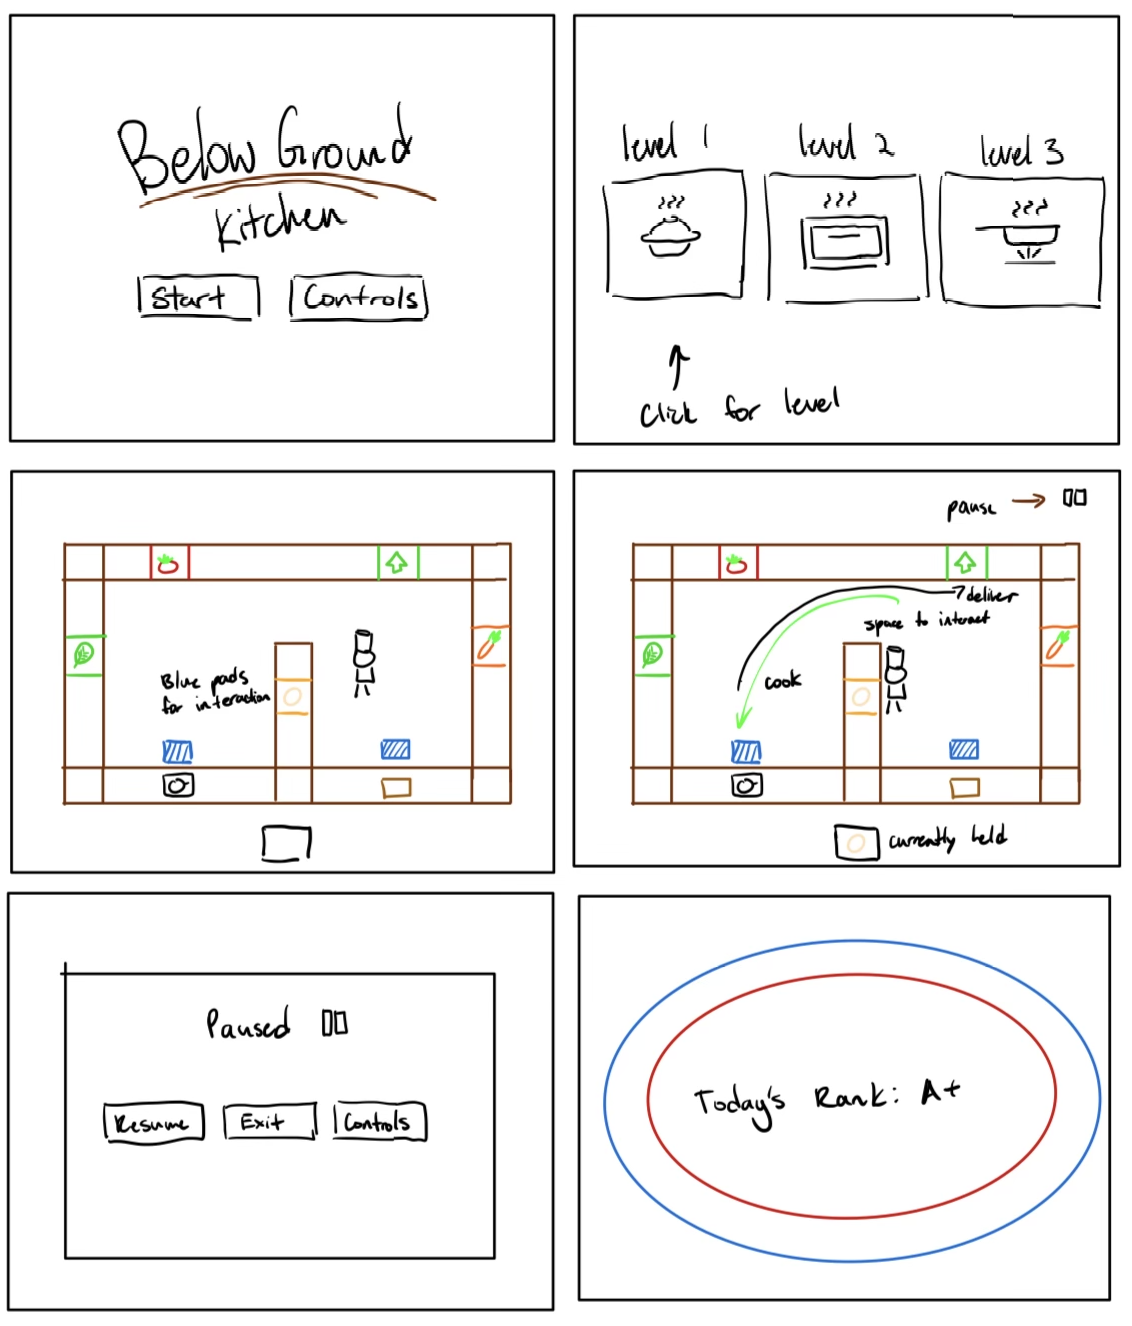 Below Ground
Kitchen
Start
Controls
level 1
level 2
level 3
Click for level
Blue pads
for interaction
pause
deliver
space to interact
cook
currently held
Paused
Resume
Exit
Controls
Today's Rank: A+